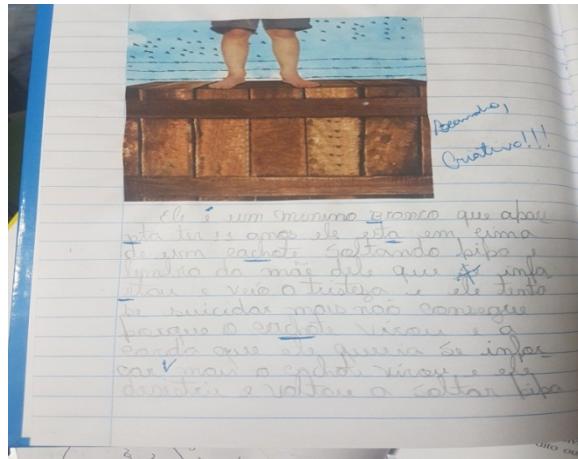 Leandro,
Criativo!!!
Ele é um menino branco que apare
nta ter 12 anos ele esta em cima
de um cachote soltando pipa e
lembra da mãe dele que infa
rtou e veio a tristeza e ele tenta
se suicidar mais não consegue
porque o cachote virou e a
corda que ele queria se infor
car mais o cachote virou e ele
desistiu e voltou a soltar pipa